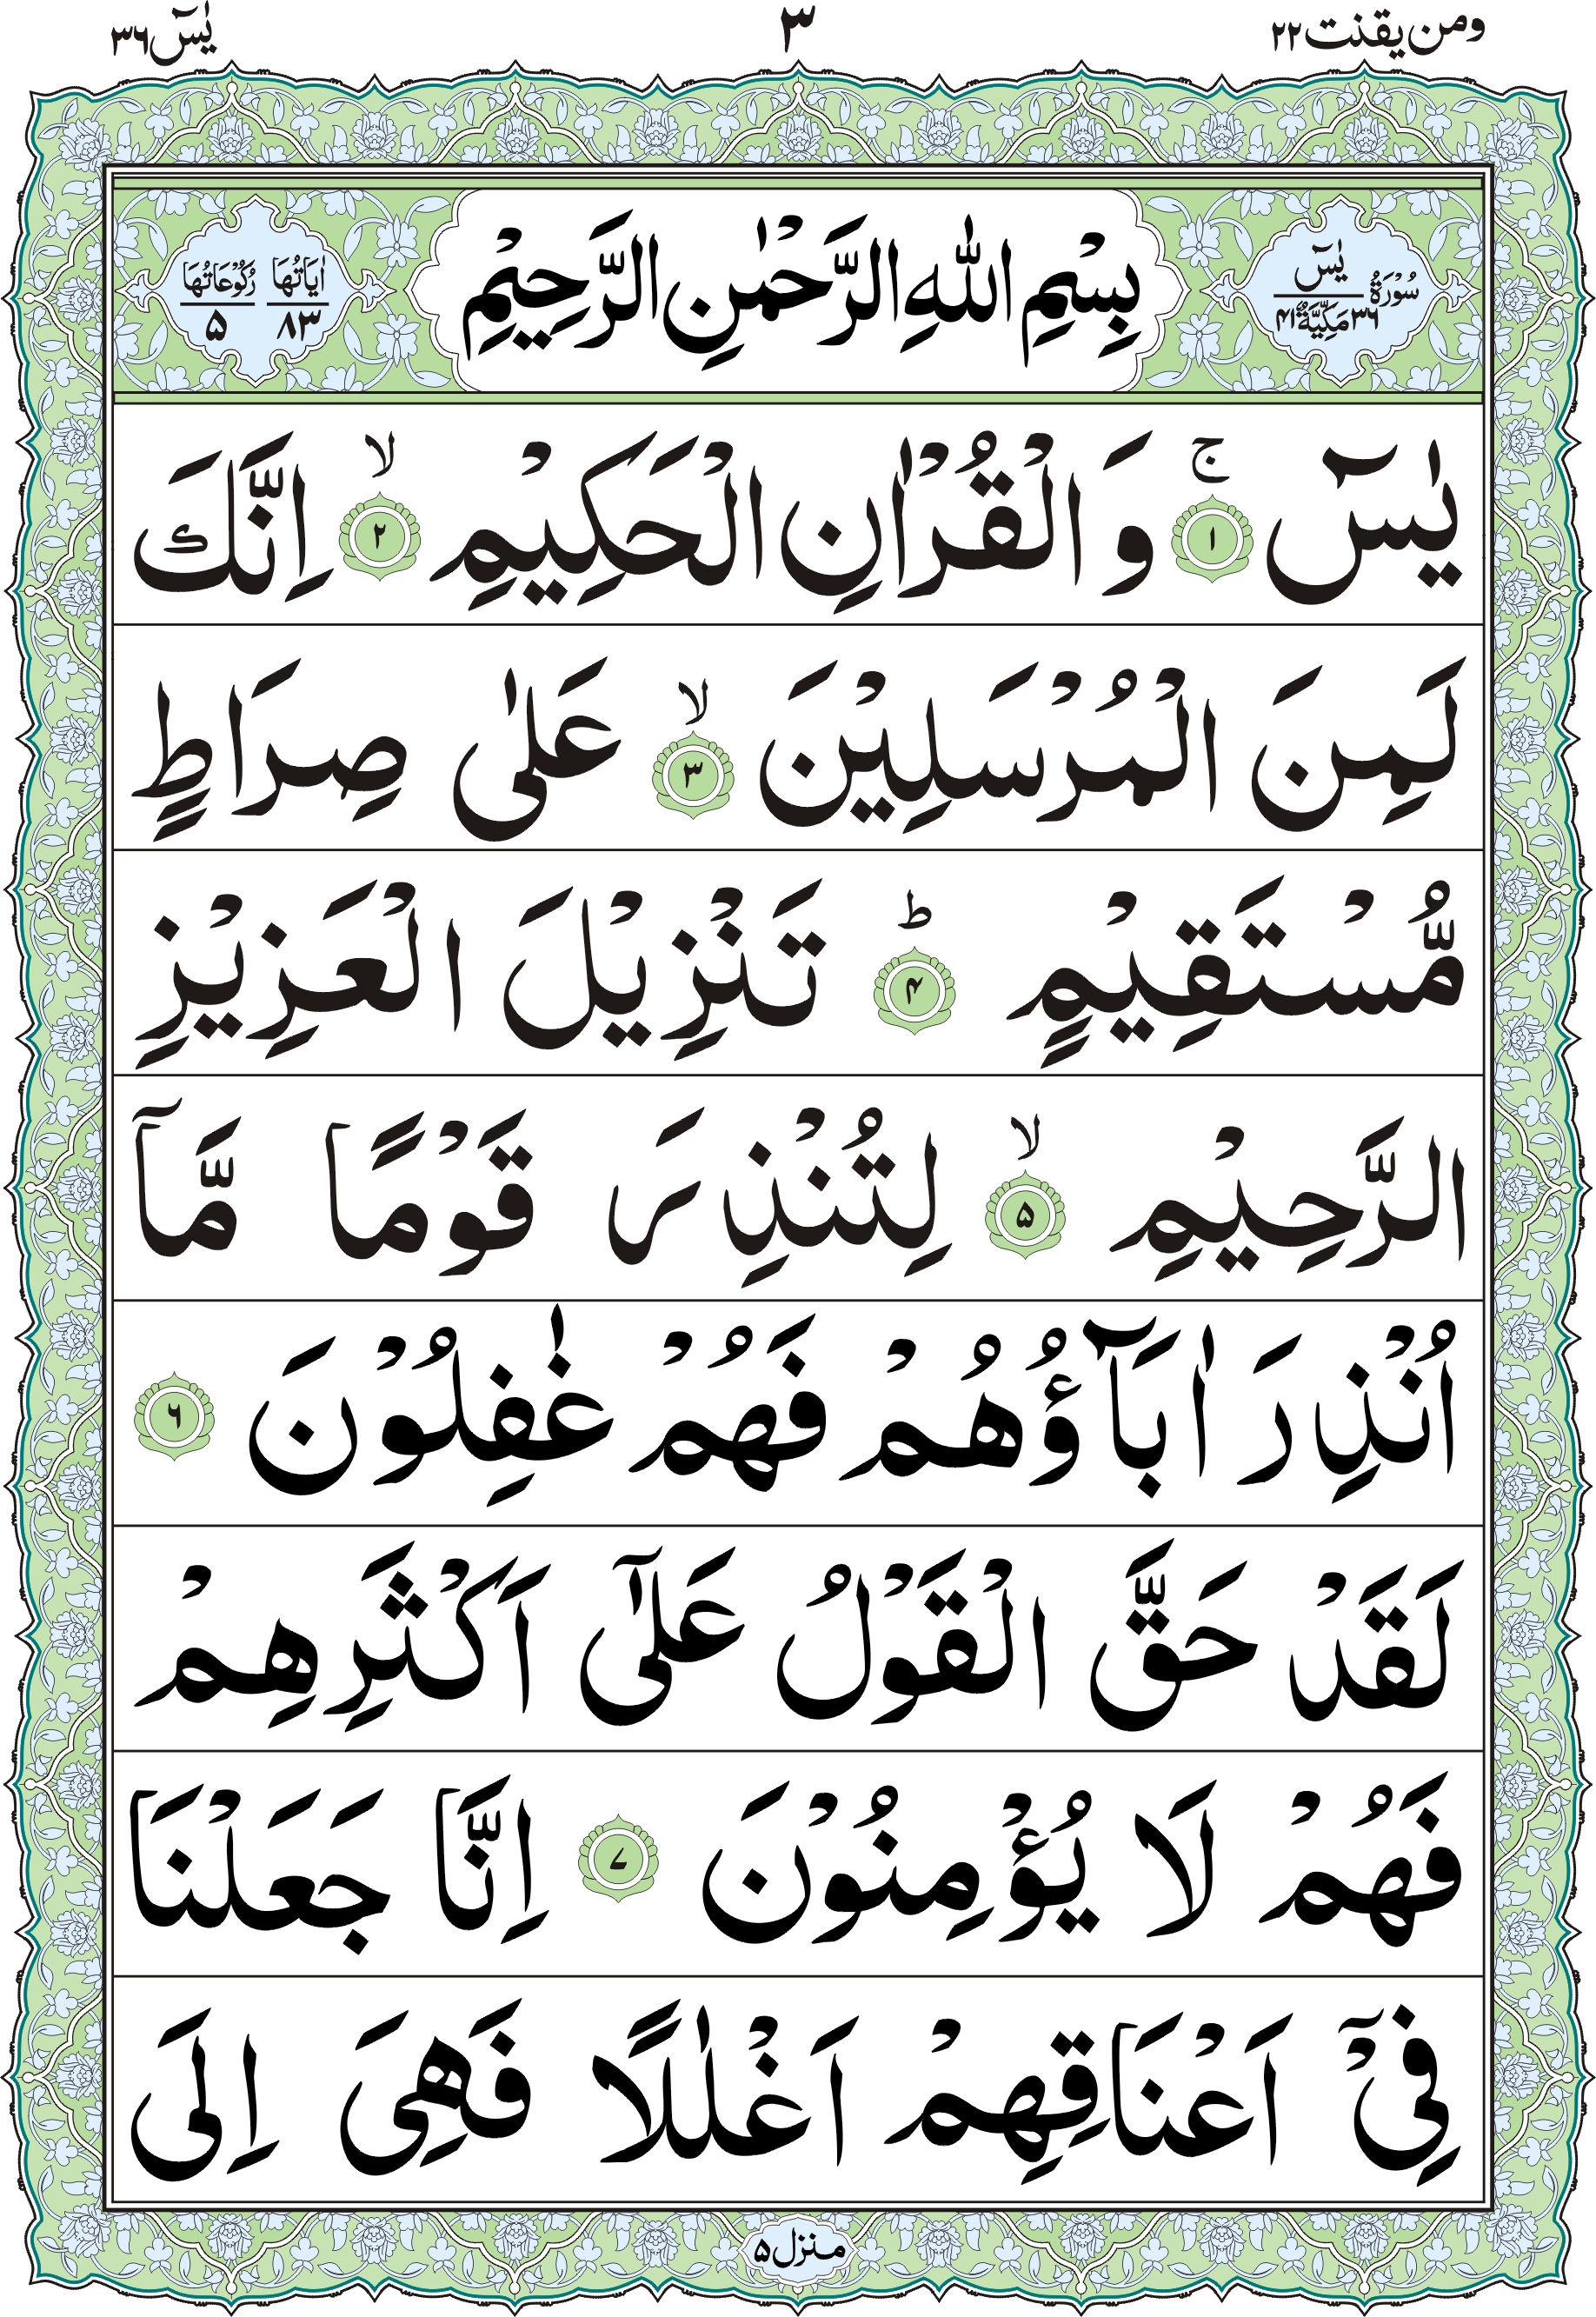 ومن یقنت ۲۲
۳
یٰسٓ ۳۶
سُوْرَةُ یٰسٓ
۳۶ مَکِّیَّةٌ ۴۱
بِسْمِ اللّٰهِ الرَّحْمٰنِ الرَّحِیْمِ
اٰیَاتُهَا ۸۳
رُکُوْعَاتُهَا ۵
یٰسٓ ۚ﴿۱﴾ وَ الْقُرْاٰنِ الْحَکِیْمِ ۙ﴿۲﴾ اِنَّكَ
لَمِنَ الْمُرْسَلِیْنَ ۙ﴿۳﴾ عَلٰی صِرَاطٍ
مُّسْتَقِیْمٍ ؕ﴿۴﴾ تَنْزِیْلَ الْعَزِیْزِ
الرَّحِیْمِ ۙ﴿۵﴾ لِتُنْذِرَ قَوْمًا مَّاۤ
اُنْذِرَ اٰبَآؤُهُمْ فَهُمْ غٰفِلُوْنَ ﴿۶﴾
لَقَدْ حَقَّ الْقَوْلُ عَلٰۤی اَکْثَرِهِمْ
فَهُمْ لَا یُؤْمِنُوْنَ ﴿۷﴾ اِنَّا جَعَلْنَا
فِیْۤ اَعْنَاقِهِمْ اَغْلٰلًا فَهِیَ اِلَی
منزل ۵